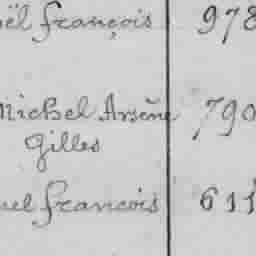 ël françois 978
Michel Arsène 790
Gilles
uel francois 611